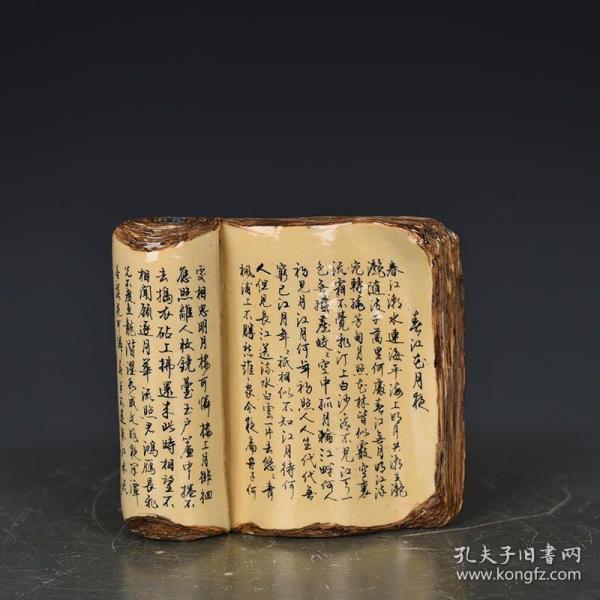 春江花月夜
春江潮水連海平海上明月共潮生灧
灧隨波千萬里何處春江無月明江流
宛轉繞芳甸月照花林皆似霰空裏
流霜不覺飛汀上白沙看不見江天一
色無纖塵皎皎空中孤月輪江畔何人
初見月江月何年初照人人生代代無
窮已江月年年祇相似不知江月待何
人但見長江送流水白雲一片去悠悠青
楓浦上不勝愁誰家今夜扁舟子何
處相思明月樓可憐樓上月徘徊
應照離人妝鏡臺玉戶簾中捲不
去搗衣砧上拂還來此時相望不
相聞願逐月華流照君鴻雁長飛
光不度魚龍潛躍水成文昨夜閒潭
夢落花可憐春半不還家江水流
孔夫子旧书网
www.kongfz.com